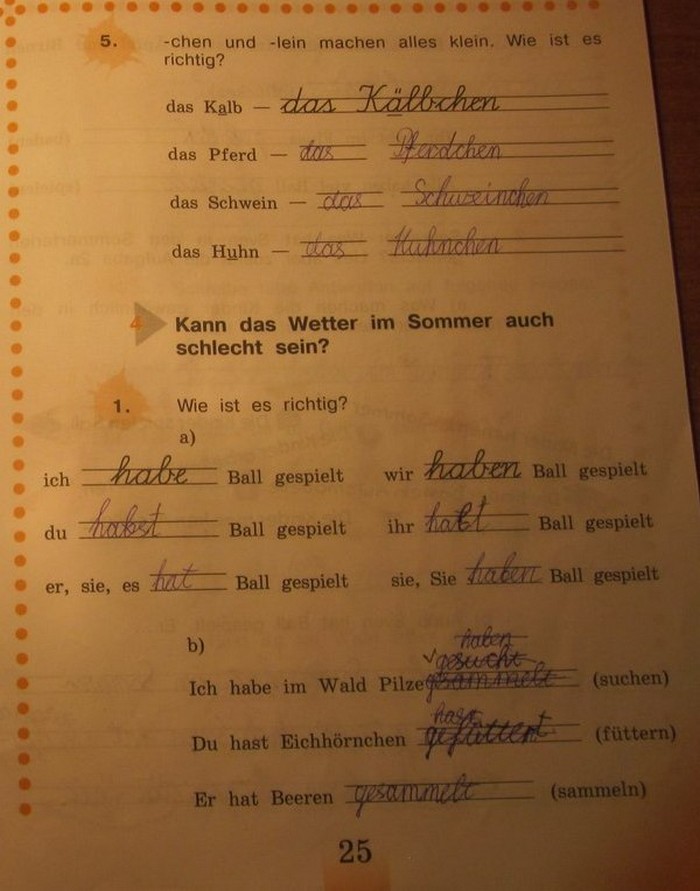 5. -chen und -lein machen alles klein. Wie ist es
richtig?
das Kalb — das Kälbchen
das Pferd — das Pferdchen
das Schwein — das Schweinchen
das Huhn — das Huhnchen
4 Kann das Wetter im Sommer auch
schlecht sein?
1. Wie ist es richtig?
a)
ich habe Ball gespielt wir haben Ball gespielt
du habst Ball gespielt ihr habt Ball gespielt
er, sie, es hat Ball gespielt sie, Sie haben Ball gespielt
b)
haben
gesucht
Ich habe im Wald Pilze gesammelt (suchen)
hast
Du hast Eichhörnchen gefüttert (füttern)
Er hat Beeren gesammelt (sammeln)
25